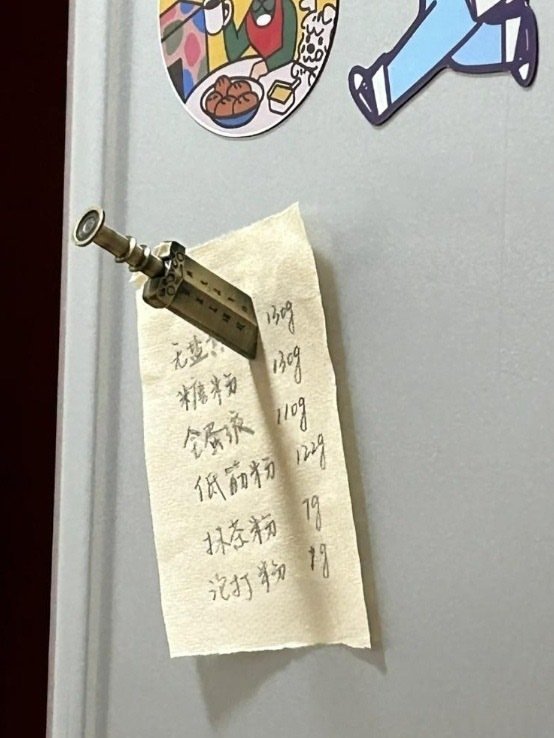 无盐 130g
糖粉 130g
全蛋液 110g
低筋粉 122g
抹茶粉 7g
泡打粉 g